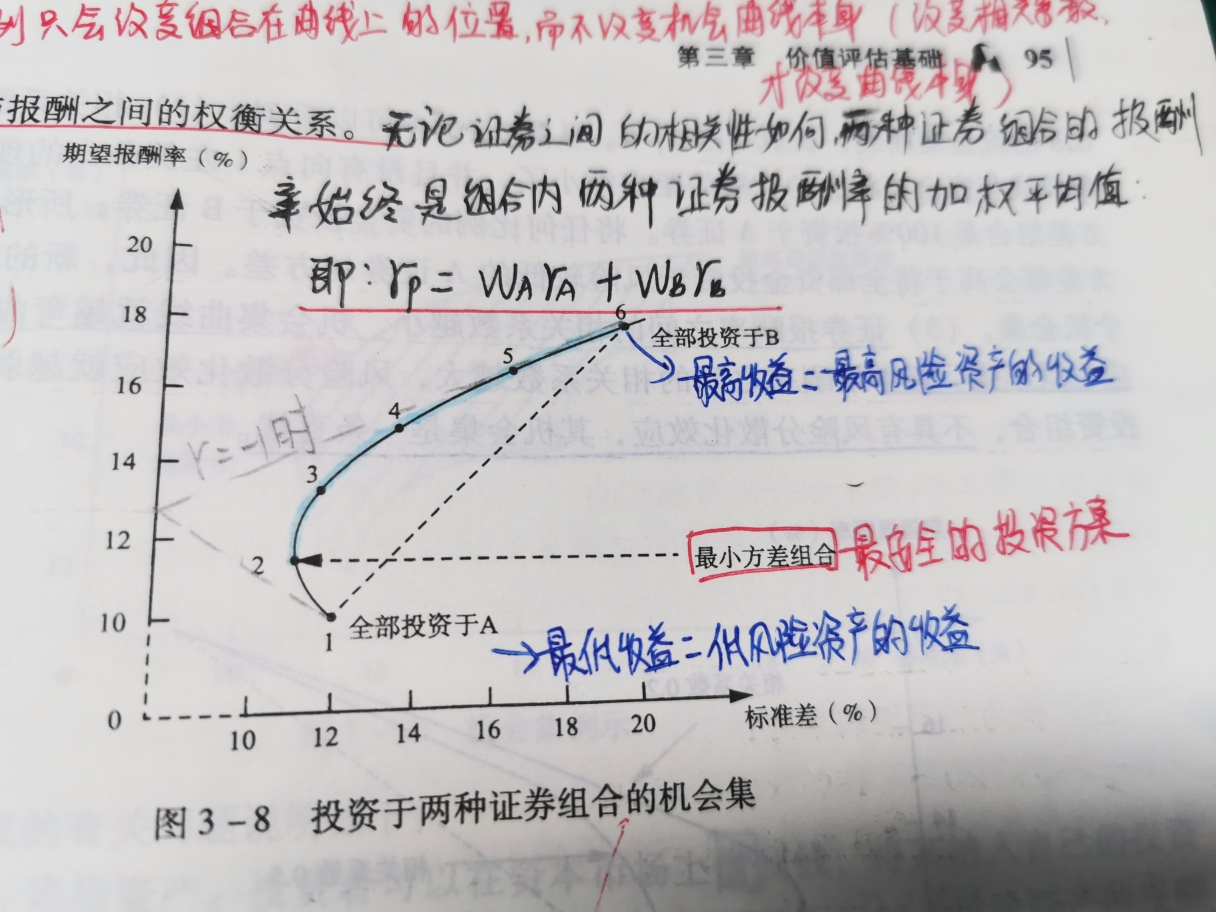 列只会改变组合在曲线上的位置,而不改变机会曲线本身(改变相关系数,
才改变曲线本身)
第三章 价值评估基础 95
报酬之间的权衡关系。无论证券之间的相关性如何,两种证券组合的报酬
率始终是组合内两种证券报酬率的加权平均值.
即:rp = WArA + WBrB
期望报酬率(%)
20
18
16
14
12
10
0
6
全部投资于B
→最高收益=最高风险资产的收益
5
4
r=-1时
3
2
最小方差组合 最安全的投资方案
1
全部投资于A
→最低收益=低风险资产的收益
10 12 14 16 18 20
标准差(%)
图3-8 投资于两种证券组合的机会集